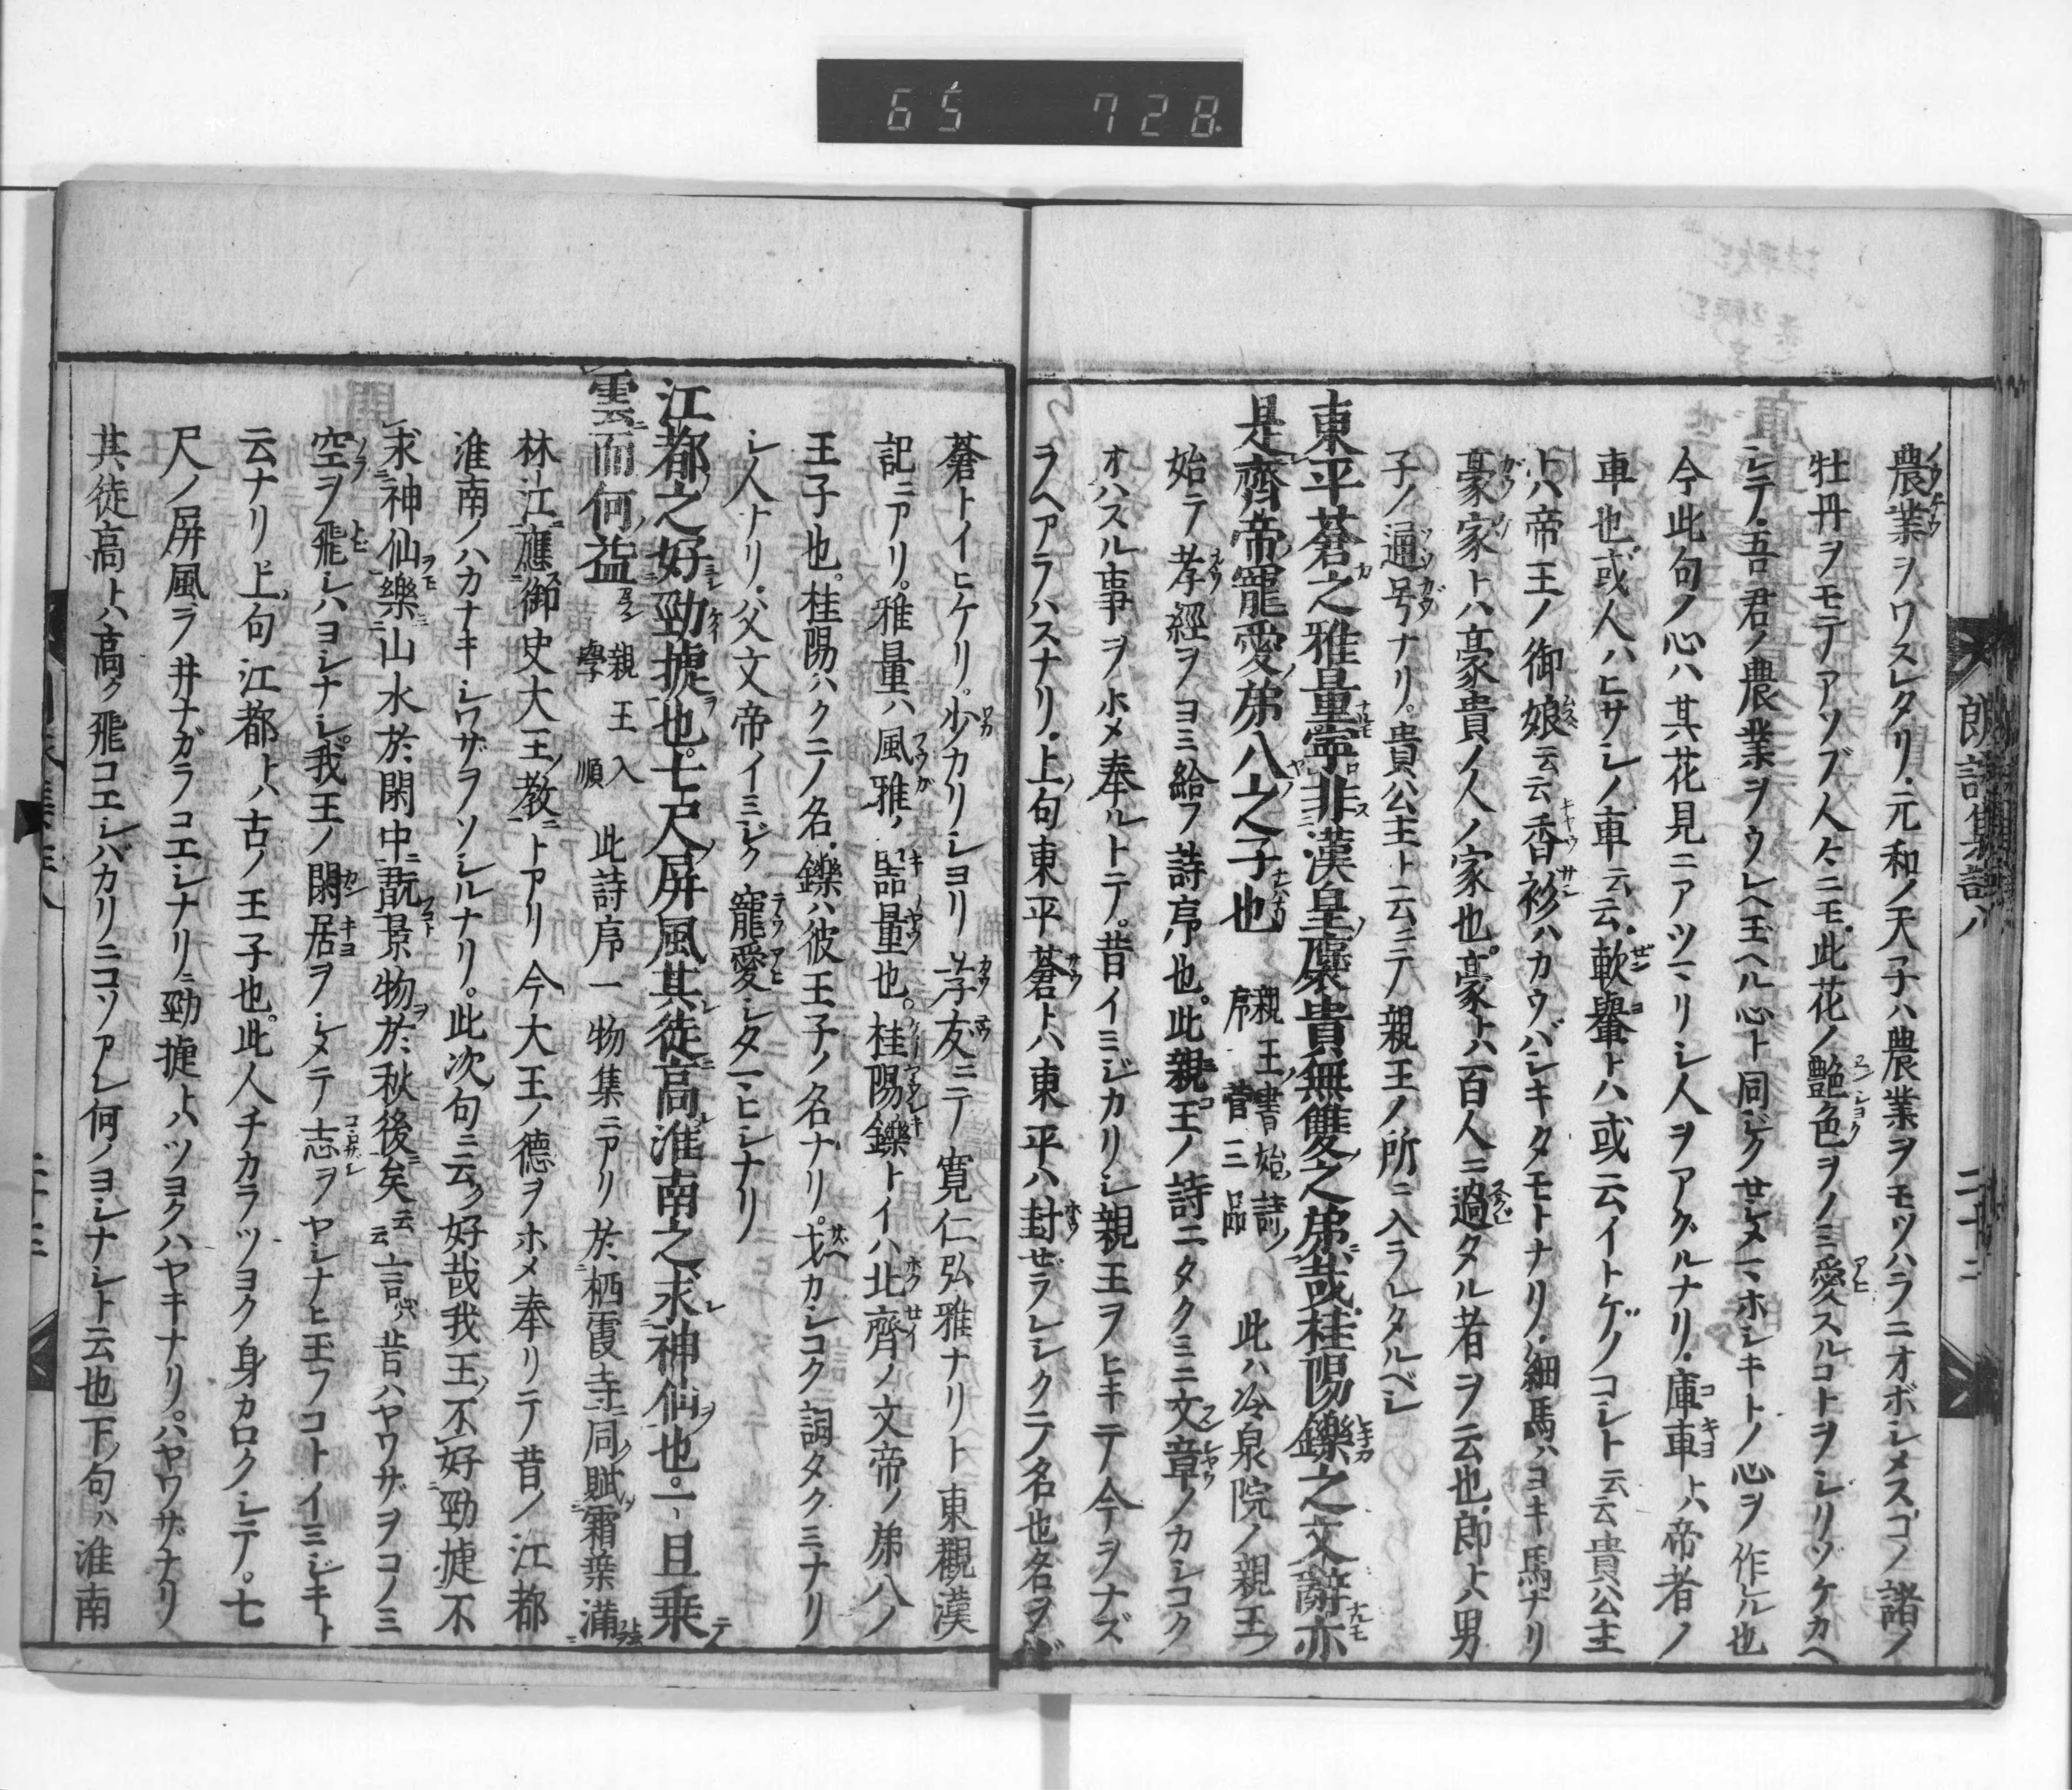 65 728
農業ヲワスレタリ元和ノ天子ハ農業ヲモツハラニオボシメスゴノ諸ノ
牡丹ヲモテアソブ人々ニモ此花ノ艶色ヲノミ愛スルコトヲシリゾケカヘ
シテ吾君ノ農業ヲウレヘ玉ヘル心ト同ジクセシメマホシキトノ心ヲ作ル也
今此句ノ心ハ其花見ニアツマリシ人ヲアグルナリ庫車トハ帝者ノ
車也或人ハヒサシノ車云云軟轝トハ或云イトゲノコシト云云貴公主
トハ帝王ノ御娘云云香衫ハカウバシキタモトナリ細馬ハヨキ馬ナリ
豪家トハ豪貴ノ人ノ家也豪トハ百人ニ過タル者ヲ云也郎トハ男
子ノ通号ナリ貴公主ト云ニテ親王ノ所ニ入ラレタルベシ
東平蒼之雅量寧非漢皇褒貴無雙之弟哉桂陽鑠之文辭亦
是齊帝寵愛弟八之子也 親王書始詩序 菅三品 此ハ冷泉院ノ親王ノ
始テ孝經ヲヨミ給フ詩序也此親王ノ詩ニタクミニ文章ノカシコク
オハスル事ヲホメ奉ルトテ昔イミジカリシ親王ヲヒキテ今ヲナズ
ラヘアラハスナリ上句東平蒼トハ東平ハ封ゼラレシクニノ名也名ヲバ
蒼トイヒケリ少カリシヨリ孝友ニテ寛仁弘雅ナリト東觀漢
記ニアリ雅量ハ風雅ノ器量也桂陽鑠トイハ北齊ノ文帝ノ弟八ノ
王子也桂陽ハクニノ名鑠ハ彼王子ノ名ナリ才カシコク詞タクミナリ
シ人ナリ父文帝イミジク寵愛シタマヒシナリ
江都之好勁捷也七尺屏風其徒高淮南之求神仙也一旦乗
雲而何益 親王入學 順 此詩序一物集ニアリ於栖霞寺同賦霜葉滿
林江應御史大王教トアリ今大王ノ德ヲホメ奉リテ昔ノ江都
淮南ノハカナキシワザヲソシルナリ此次句ニ云ク好哉我王不好勁捷不
求神仙樂山水於閑中翫景物於秋後矣云云言ハ昔ハヤワザヲコノミ
空ヲ飛シハヨシナシ我王ノ閑居ヲシメテ志ヲヤシナヒ玉フコトイミジキト
云ナリ上句江都トハ古ノ王子也此人チカラツヨク身カロクシテ七
尺ノ屏風ヲ井ナガラコエシナリ勁捷トハツヨクハヤキナリハヤワザナリ
其徒高トハ高ク飛コエシバカリニコソアレ何ノヨシナシト云也下ノ句ハ淮南